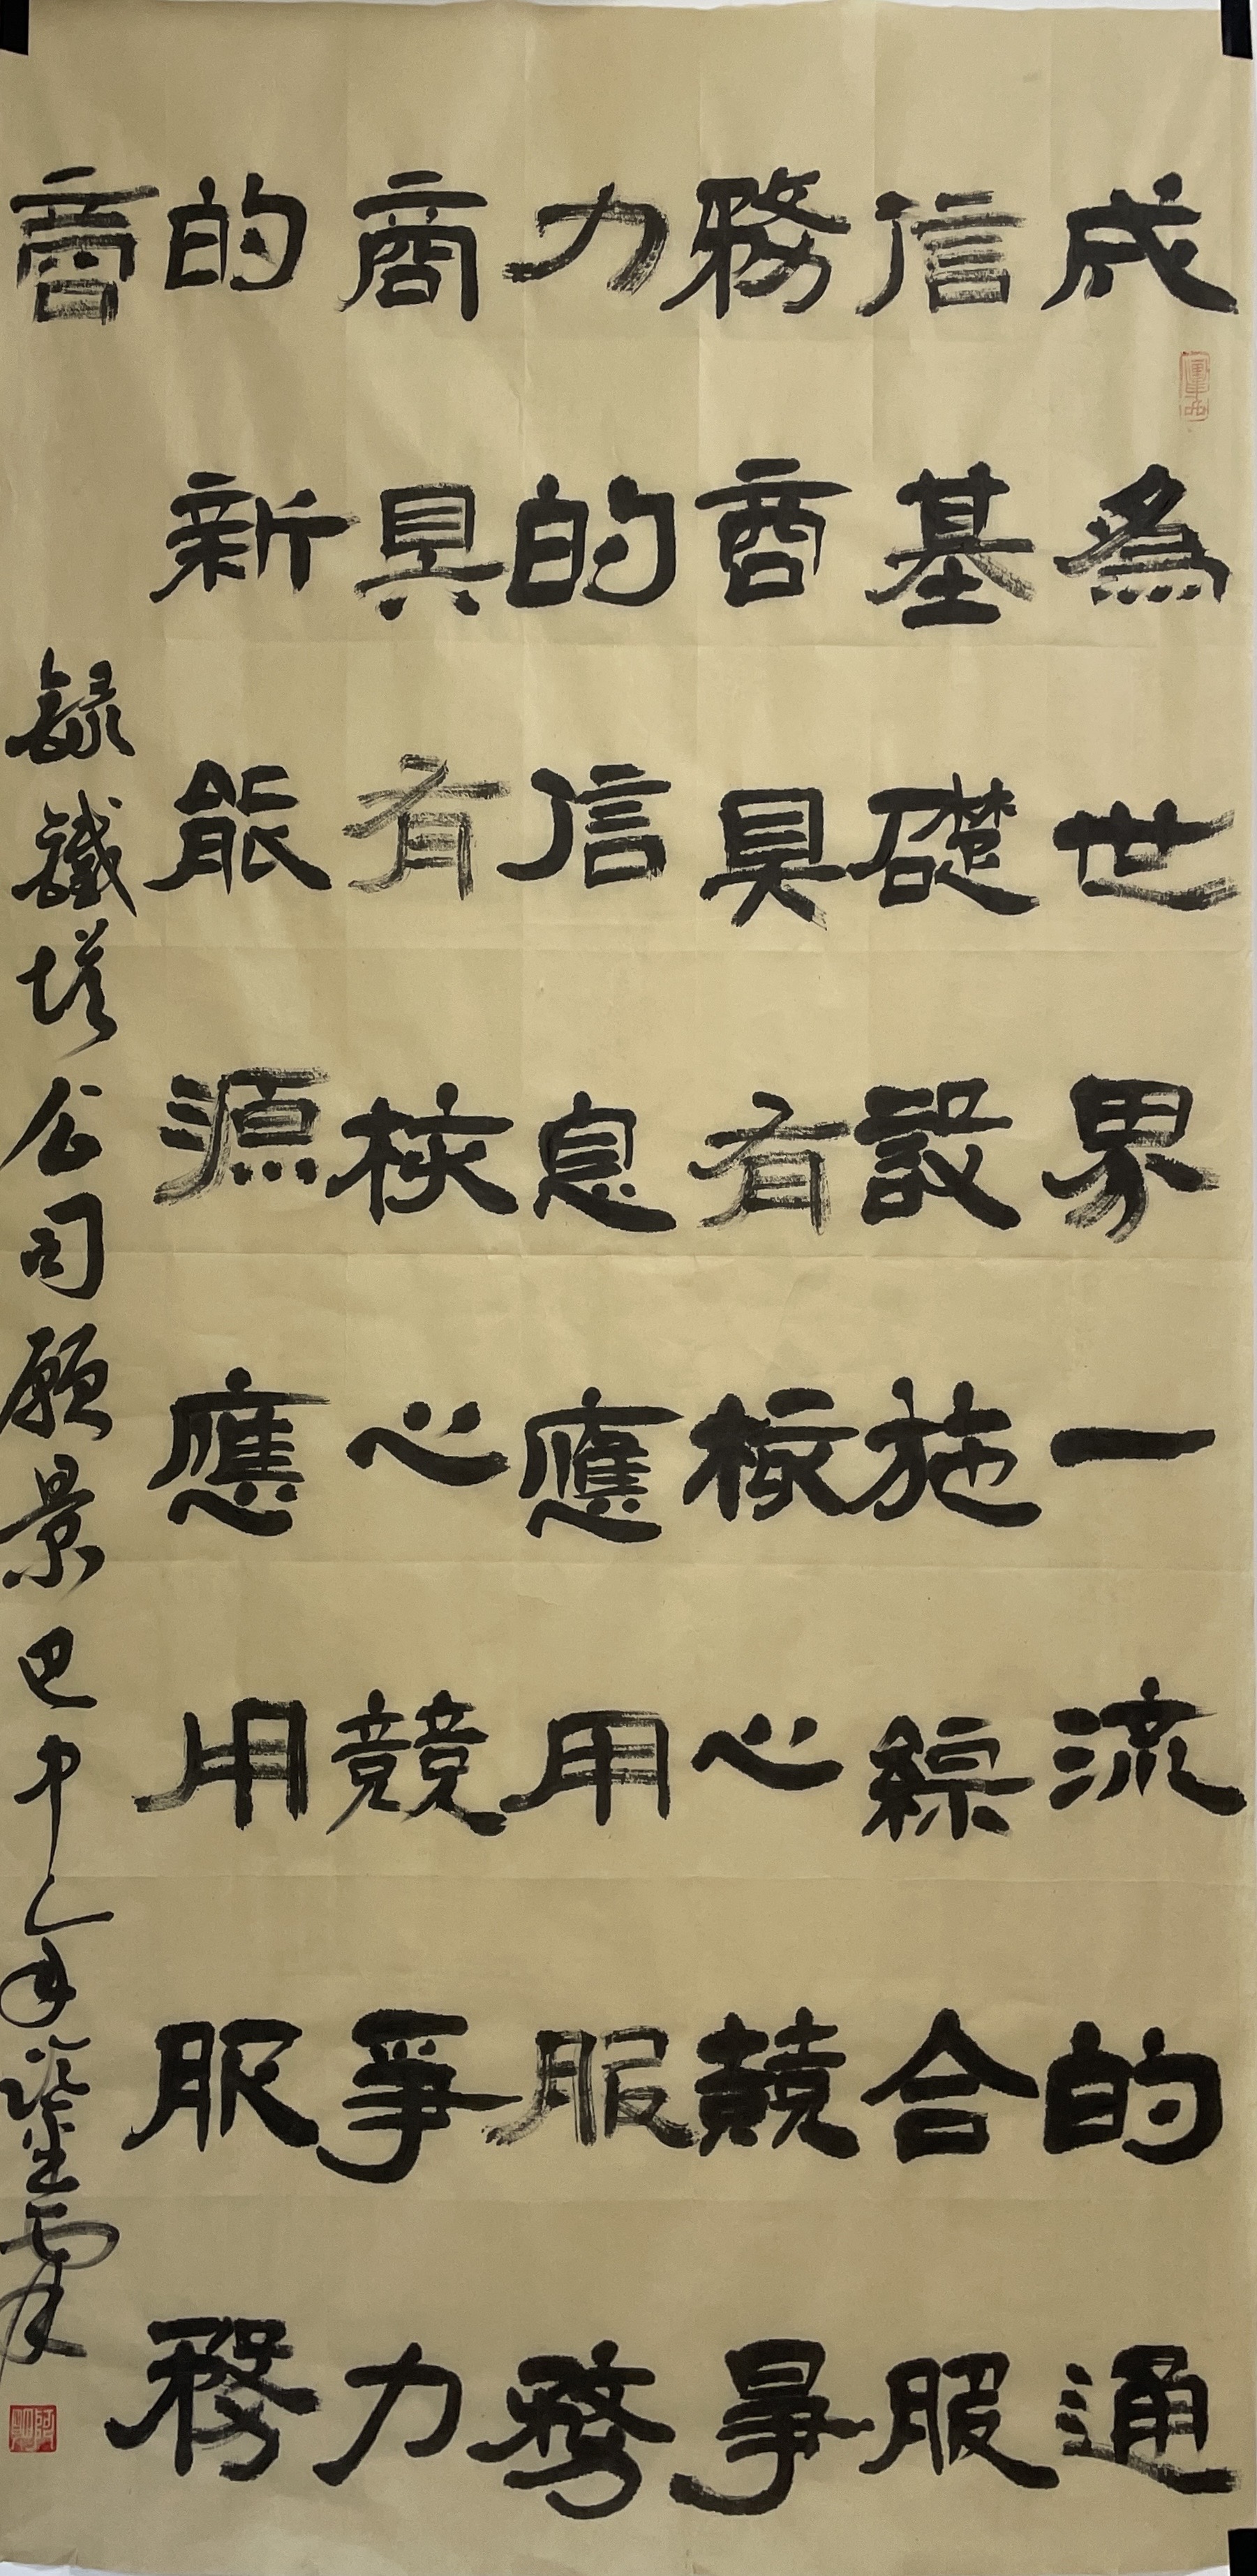 成為世界一流的通
信基礎設施綜合服
務商具有核心競爭
力的信息應用服務
商具有核心競爭力
的新能源應用服務
商
錄鐵塔公司願景巴中乙年